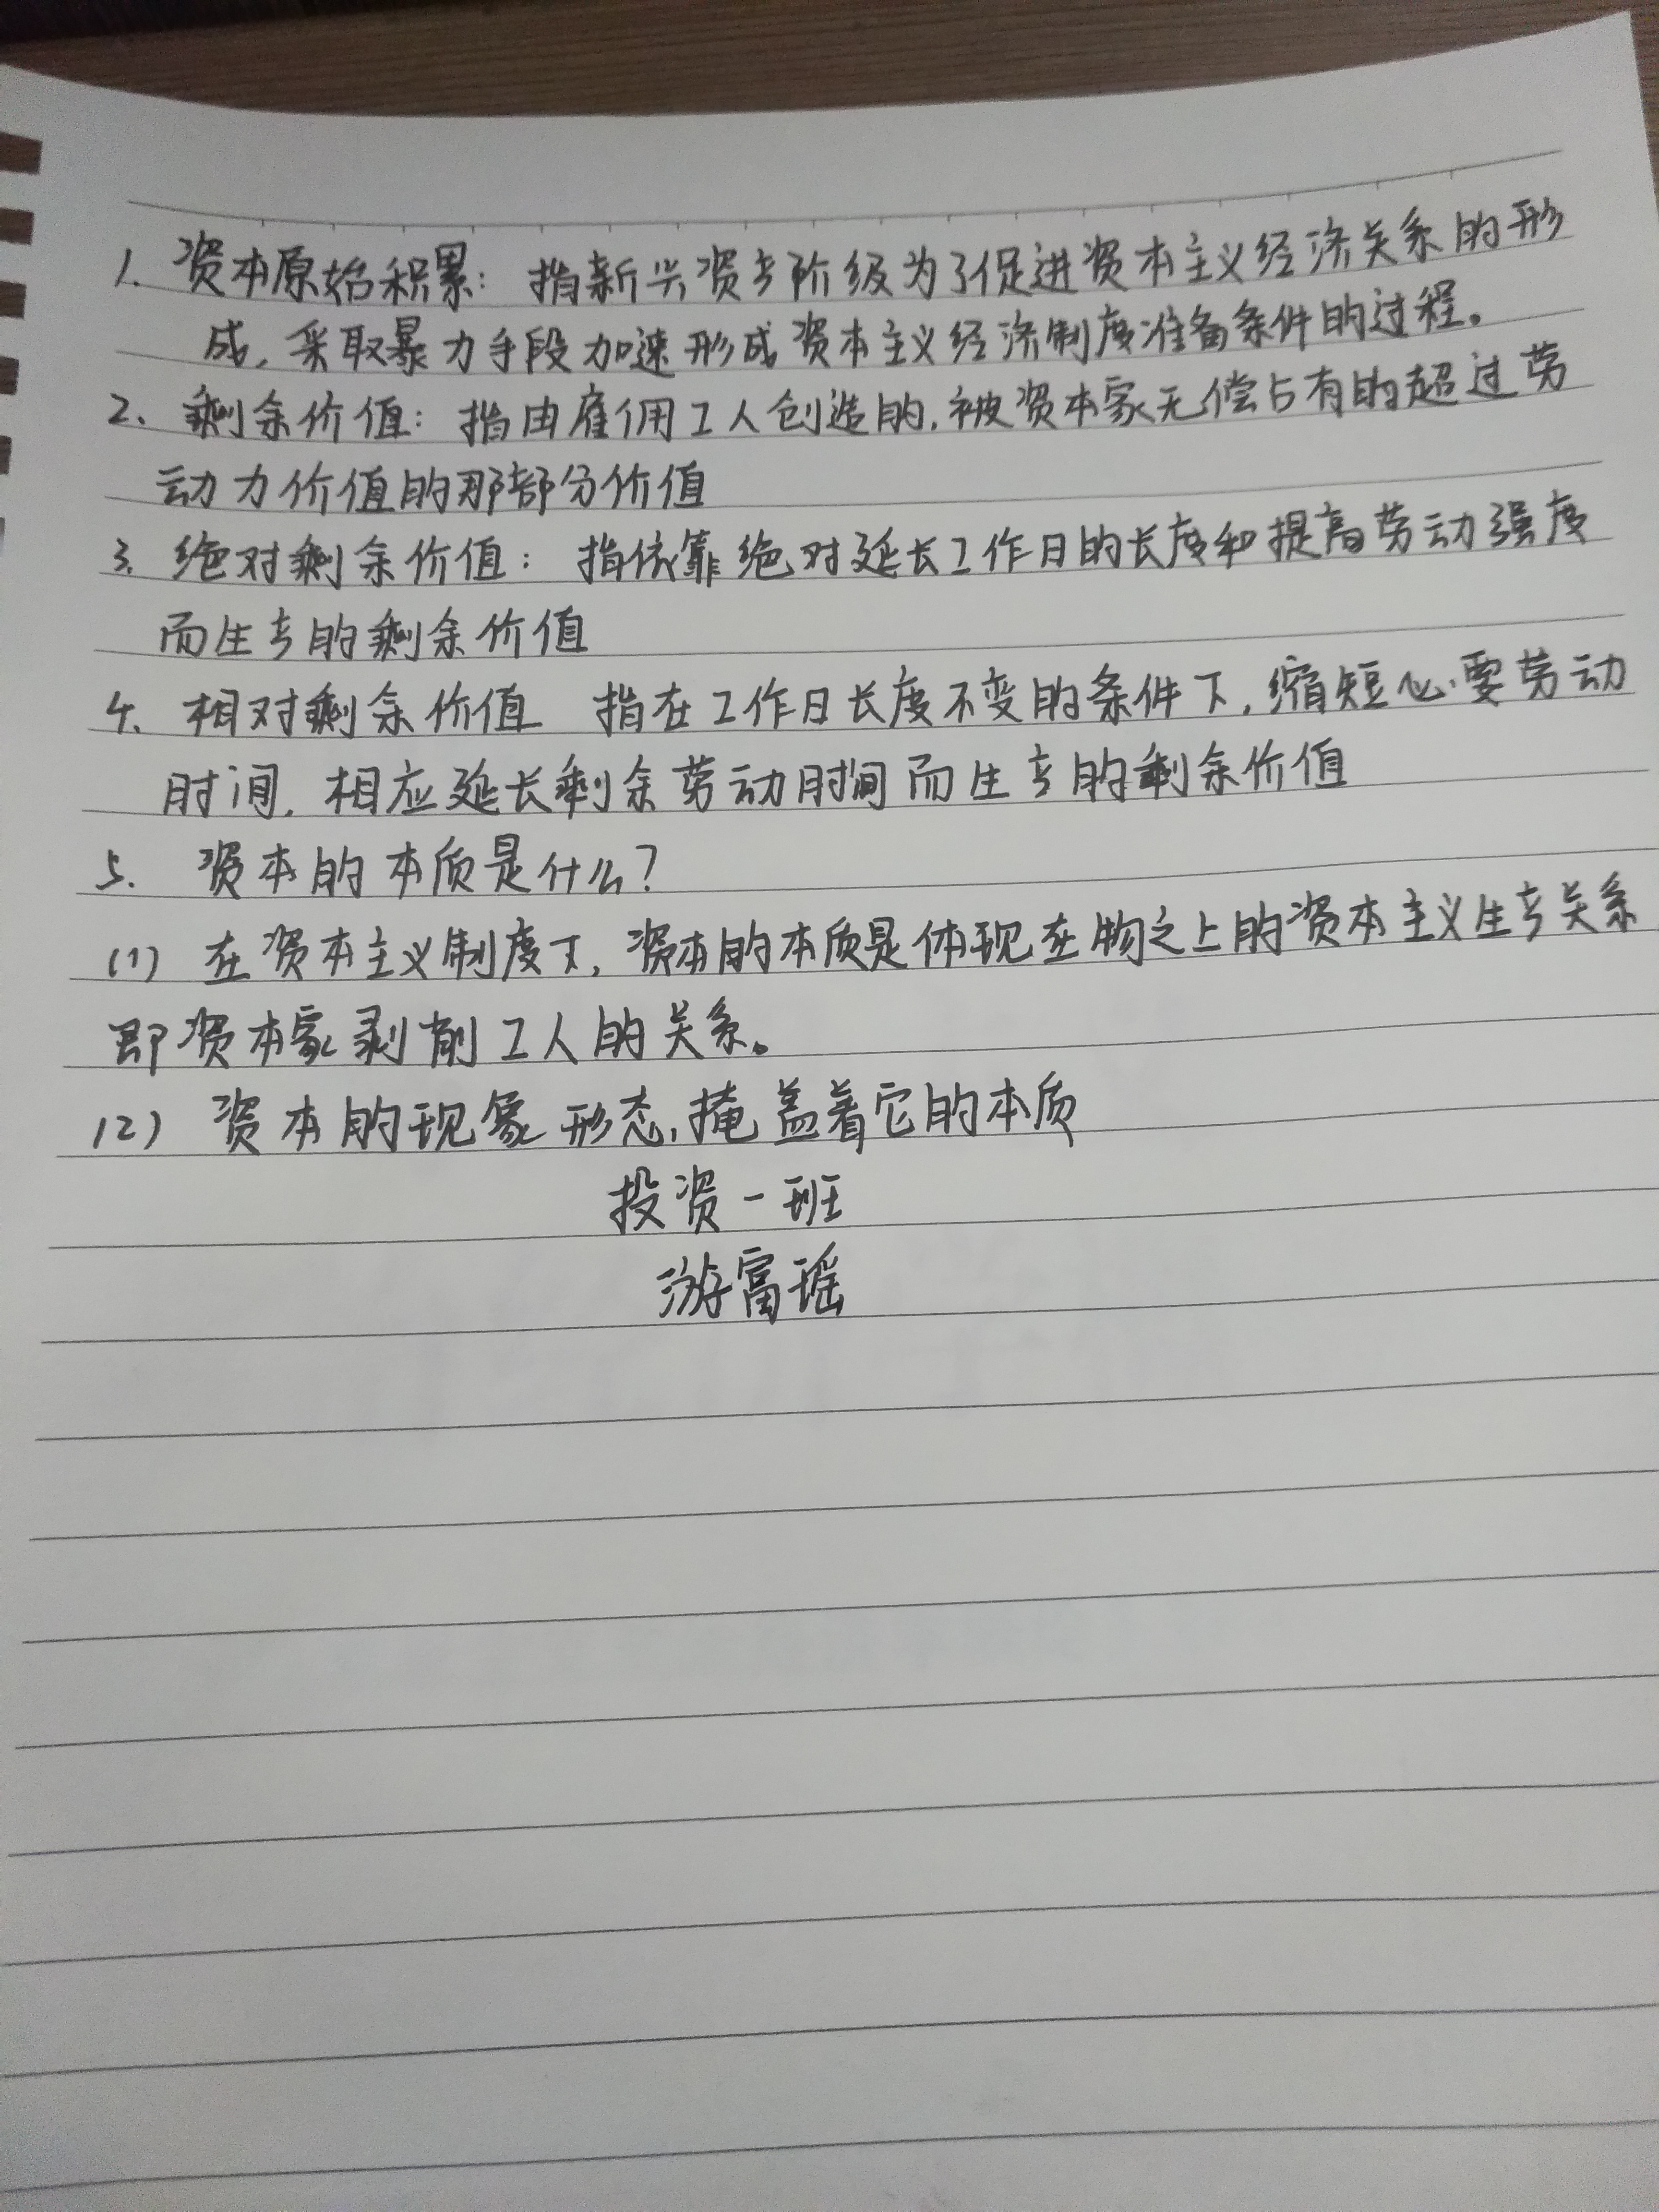 1. 资本原始积累：指新兴资产阶级为了促进资本主义经济关系的形
成，采取暴力手段加速形成资本主义经济制度准备条件的过程。
2. 剩余价值：指由雇佣工人创造的，被资本家无偿占有的超过劳
动力价值的那部分价值
3. 绝对剩余价值：指依靠绝对延长工作日的长度和提高劳动强度
而生产的剩余价值
4. 相对剩余价值 指在工作日长度不变的条件下，缩短必要劳动
时间，相应延长剩余劳动时间而生产的剩余价值
5. 资本的本质是什么？
(1) 在资本主义制度下，资本的本质是体现在物之上的资本主义生产关系
即资本家剥削工人的关系。
(2) 资本的现象形态，掩盖着它的本质
投资一班
游富瑶